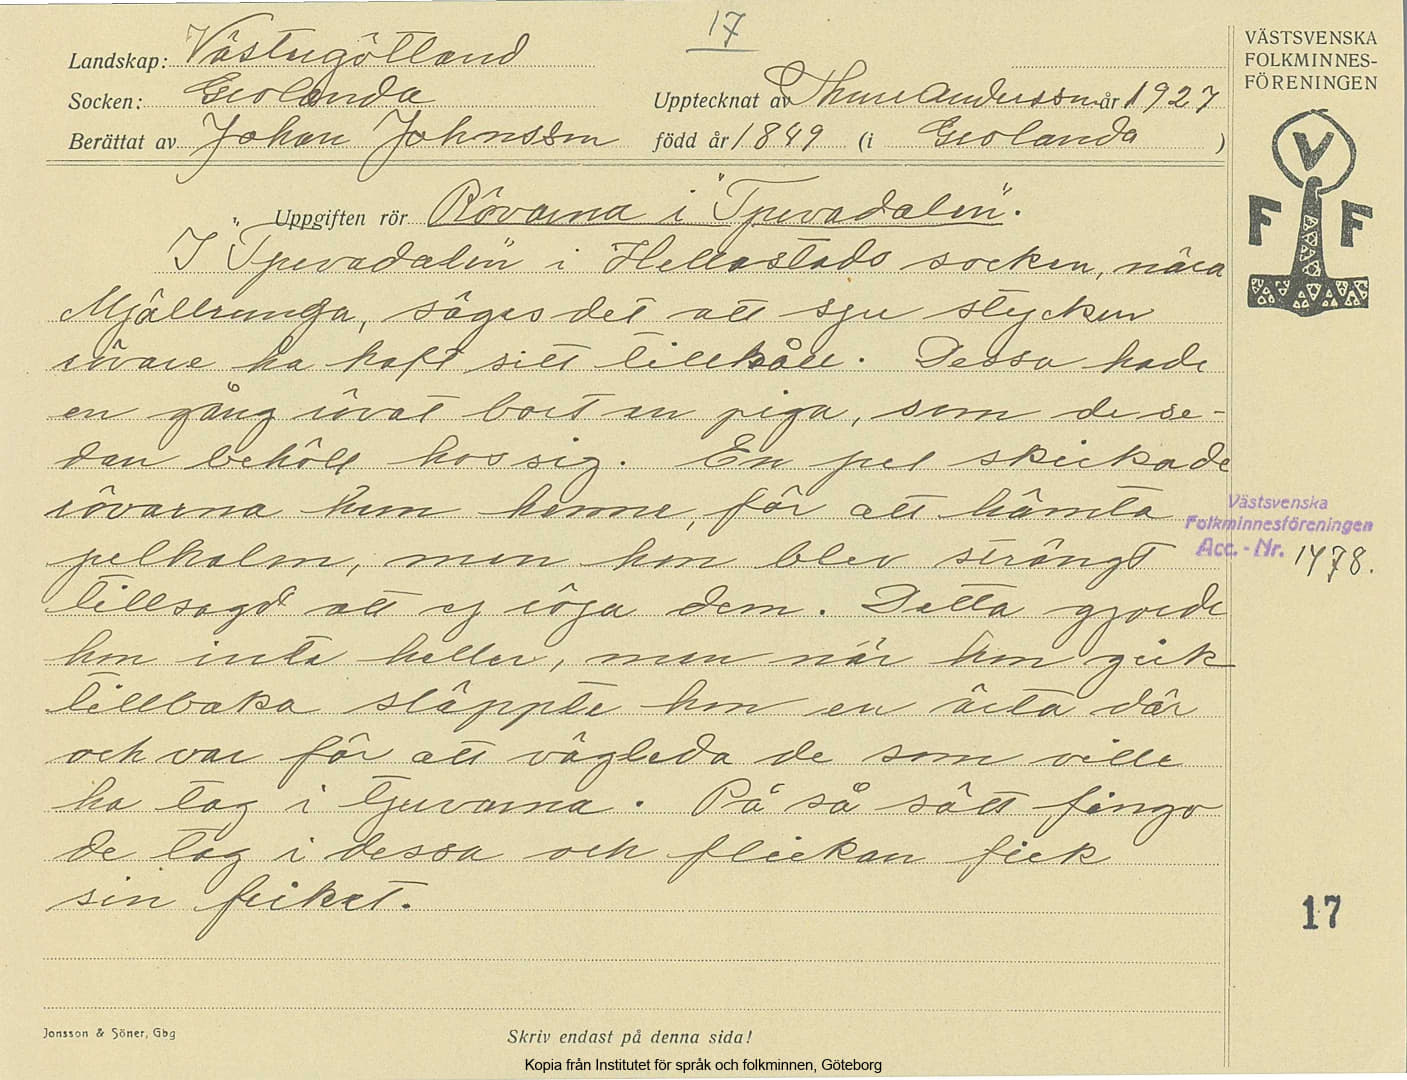 17
VÄSTSVENSKA
FOLKMINNES-
FÖRENINGEN
Landskap: Västergötland
Socken: Grolanda Upptecknat av Thure Andersson år 1927
Berättat av Johan Johnsson född år 1849 (i Grolanda )
V
F F
Uppgiften rör Rövarna i "Tjuvadalen".
I "Tjuvadalen" i Hellestads socken, nära
Mjällrunga, säges det att sju stycken
rövare ha haft sitt tillhåll. Dessa hade
en gång rövat bort en piga, som de se-
dan behöll hos sig. En jul skickade
rövarna hem henne, för att hämta
julhalm, men hon blev strängt
tillsagd att ej röja dem. Detta gjorde
hon inte heller, men när hon gick
tillbaka släppte hon en ärta där
och var för att vägleda de som ville
ha tag i tjuvarna. På så sätt fingo
de tag i dessa och flickan fick
sin frihet.
Västsvenska
Folkminnesföreningen
Acc. - Nr. 1478.
17
Jonsson & Söner, Gbg
Skriv endast på denna sida!
Kopia från Institutet för språk och folkminnen, Göteborg